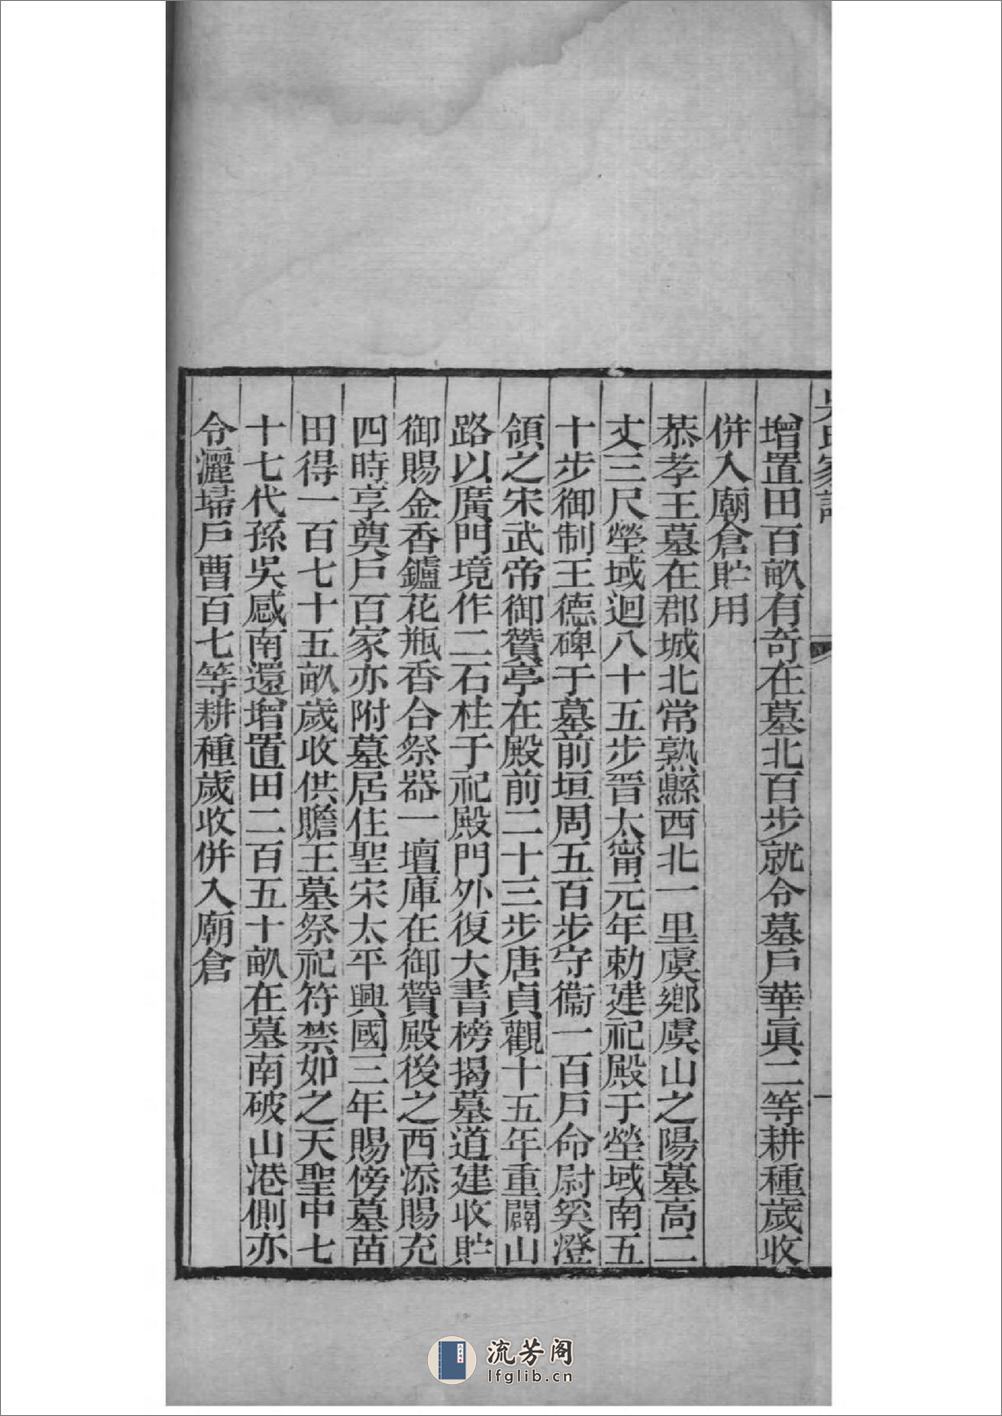 吳氏家譜
增置田百畝有奇在墓北百步就令墓戶華眞二等耕種歲收
併入廟倉貯用
恭孝王墓在郡城北常熟縣西北一里虞鄉虞山之陽墓高二
丈三尺塋域迴八十五步晉太甯元年勅建祀殿于塋域南五
十步御制王德碑于墓前垣周五百步守衞一百戶命尉奚澄
領之宋武帝御贊亭在殿前二十三步唐貞觀十五年重闢山
路以廣門境作二石柱于祀殿門外復大書榜揭墓道建收貯
御賜金香鑪花瓶香合祭器一壇庫在御贊殿後之西添賜充
四時享奠戶百家亦附墓居住聖宋太平興國三年賜傍墓苗
田得一百七十五畝歲收供贍王墓祭祀符禁如之天聖中七
十七代孫吳感南還增置田二百五十畝在墓南破山港側亦
令灑埽戶曹百七等耕種歲收併入廟倉
流芳阁
lfglib.cn